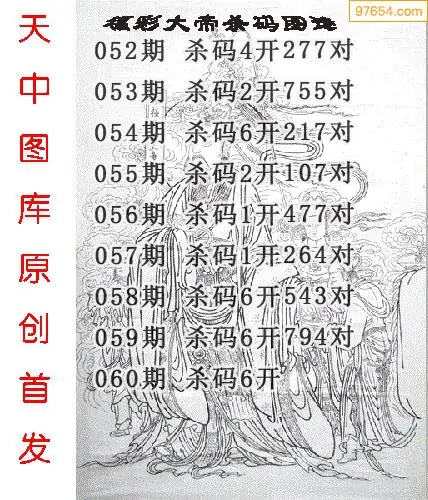 97654.com
福彩大帝杀码图迷
天中图库原创首发
052期 杀码4开277对
053期 杀码2开755对
054期 杀码6开217对
055期 杀码2开107对
056期 杀码1开477对
057期 杀码1开264对
058期 杀码6开543对
059期 杀码6开794对
060期 杀码6开